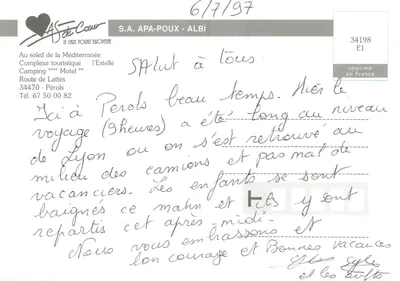 6/7/97
As de Cœur
S.A. APA-POUX - ALBI
34198
E1
Imprimé
en France
Au soleil de la Méditerranée
Complexe touristique l'Estelle
Camping **** Motel **
Route de Lattes
34470 - Pérols
Tél. 67 50 00 82
SALut à tous.
Ici à Perols beau temps. Hier le
voyage (9heures) a été long au niveau
de Lyon ou on s'est retrouvé au
milieu des camions et pas mal de
vacanciers. Les enfants se sont
baignés ce matin et ils y sont
repartis cet après-midi.
Nous vous embrassons et
bon courage et Bonnes vacances
et les